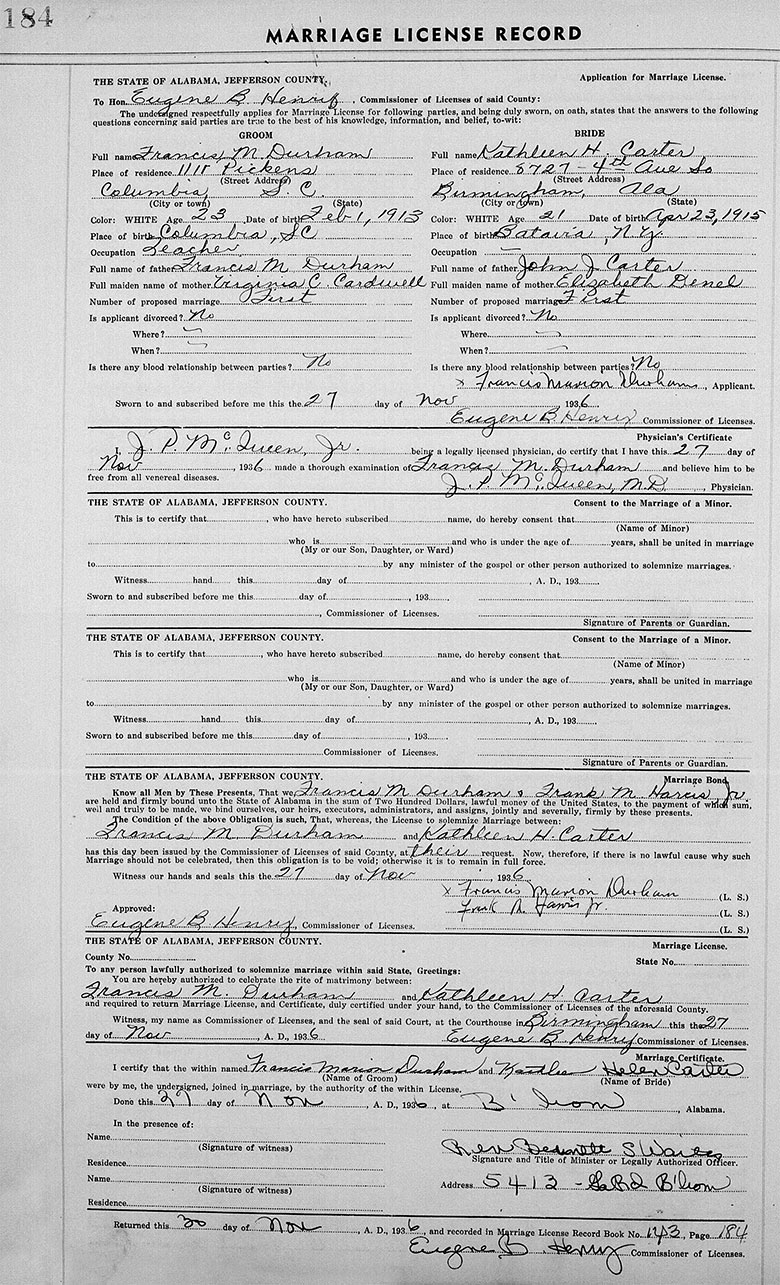 184
MARRIAGE LICENSE RECORD
THE STATE OF ALABAMA, JEFFERSON COUNTY. Application for Marriage License.
To Hon. Eugene B. Henry, Commissioner of Licenses of said County:
The undersigned respectfully applies for Marriage License for following parties, and being duly sworn, on oath, states that the answers to the following
questions concerning said parties are true to the best of his knowledge, information, and belief, to-wit:
GROOM BRIDE
Full name Francis M. Durham Full name Kathleen H. Carter
Place of residence 1111 Pickens Place of residence 8727 - 4th Ave So
(Street Address) (Street Address)
Columbia, S. C Birmingham, Ala
(City or town) (State) (City or town) (State)
Color: WHITE Age 23, Date of birth Feb 1, 1913 Color: WHITE Age 21 Date of birth Apr 23, 1915
Place of birth Columbia, SC Place of birth Batavia, N.Y.
Occupation Teacher Occupation —
Full name of father Francis M Durham Full name of father John J. Carter
Full maiden name of mother Virginia C. Cardwell Full maiden name of mother Elizabeth Benel
Number of proposed marriage First Number of proposed marriage First
Is applicant divorced? No Is applicant divorced? No
Where? Where
When? When?
Is there any blood relationship between parties? No Is there any blood relationship between parties? No
x Francis Marion Durham, Applicant.
Sworn to and subscribed before me this the 27 day of Nov, 1936
Eugene B. Henry Commissioner of Licenses.
Physician's Certificate
I, J. P. McQueen, Jr. being a legally licensed physician, do certify that I have this 27 day of
Nov, 1936 made a thorough examination of Francis M. Durham and believe him to be
free from all venereal diseases. J. P. McQueen, M.D., Physician.
THE STATE OF ALABAMA, JEFFERSON COUNTY. Consent to the Marriage of a Minor.
This is to certify that, who have hereto subscribed name, do hereby consent that
(Name of Minor)
who is and who is under the age of years, shall be united in marriage
(My or our Son, Daughter, or Ward)
to by any minister of the gospel or other person authorized to solemnize marriages.
Witness hand this day of, A. D., 193
Sworn to and subscribed before me this day of, 193
, Commissioner of Licenses.
Signature of Parents or Guardian.
THE STATE OF ALABAMA, JEFFERSON COUNTY. Consent to the Marriage of a Minor.
This is to certify that, who have hereto subscribed name, do hereby consent that
(Name of Minor)
who is and who is under the age of years, shall be united in marriage
(My or our Son, Daughter, or Ward)
to by any minister of the gospel or other person authorized to solemnize marriages.
Witness hand this day of, A. D., 193
Sworn to and subscribed before me this day of, 193
Commissioner of Licenses.
Signature of Parents or Guardian.
THE STATE OF ALABAMA, JEFFERSON COUNTY. Marriage Bond
Know all Men by These Presents, That we Francis M Durham & Frank M. Harris, Jr.
are held and firmly bound unto the State of Alabama in the sum of Two Hundred Dollars, lawful money of the United States, to the payment of which sum,
well and truly to be made, we bind ourselves, our heirs, executors, administrators, and assigns, jointly and severally, firmly by these presents.
The Condition of the above Obligation is such, That, whereas, the License to solemnize Marriage between:
Francis M. Durham and Kathleen H. Carter
has this day been issued by the Commissioner of Licenses of said County, at their request. Now, therefore, if there is no lawful cause why such
Marriage should not be celebrated, then this obligation is to be void; otherwise it is to remain in full force.
Witness our hands and seals this the 27 day of Nov, 1936
x Francis Marion Durham (L. S.)
Approved: Frank M. Jr. (L. S.)
Eugene B Henry, Commissioner of Licenses. (L. S.)
THE STATE OF ALABAMA, JEFFERSON COUNTY. Marriage License.
County No. State No.
To any person lawfully authorized to solemnize marriage within said State, Greetings:
You are hereby authorized to celebrate the rite of matrimony between:
Francis M. Durham and Kathleen H Carter
and required to return Marriage License, and Certificate, duly certified under your hand, to the Commissioner of Licenses of the aforesaid County.
Witness, my name as Commissioner of Licenses, and the seal of said Court, at the Courthouse in Birmingham this the 27
day of Nov, A. D., 1936 Eugene B Henry Commissioner of Licenses.
Marriage Certificate.
I certify that the within named Francis Marion Durham and Kathleen Helen Carter
(Name of Groom) (Name of Bride)
were by me, the undersigned, joined in marriage, by the authority of the within License.
Done this 27 day of Nov, A. D., 1936, at B'ham, Alabama.
In the presence of:
Name
(Signature of witness) Rev Bennett S Waites
Residence Signature and Title of Minister or Legally Authorized Officer.
Name Address 5413 - B'ham
(Signature of witness)
Residence
Returned this 30 day of Nov, A. D., 1936, and recorded in Marriage License Record Book No. 1243, Page 184
Eugene B. Henry Commissioner of Licenses.